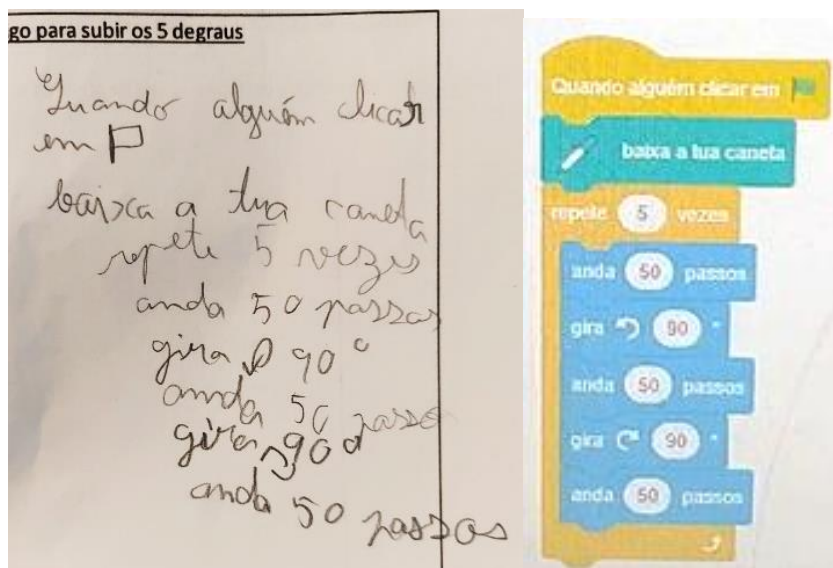 go para subir os 5 degraus
Quando alguém clicar
em
baixa a tua caneta
repete 5 vezes
anda 50 passos
gira 90°
anda 50 passo
gira 90°
anda 50 passos
Quando alguém clicar em
baixa a tua caneta
repete 5 vezes
anda 50 passos
gira 90 °
anda 50 passos
gira 90 °
anda 50 passos